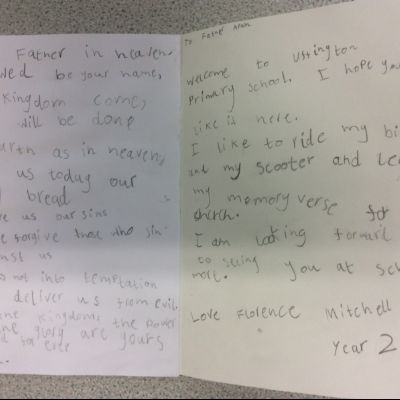 Father in heaven,
wed be your name,
Kingdom come,
will be done
arth as in heaven,
us today our
bread
us our sins
forgive those who sin
nst us
not into temptation
deliver us from evil.
the kingdom, the power
glory are yours
for ever
To Father
Welcome to Uffington
Primary School. I hope you
like it here.
I like to ride my bi
and my scooter and lea
my memory verse for
church.
I am looking forward
to seeing you at sch
more.
Love Florence Mitchell
Year 2